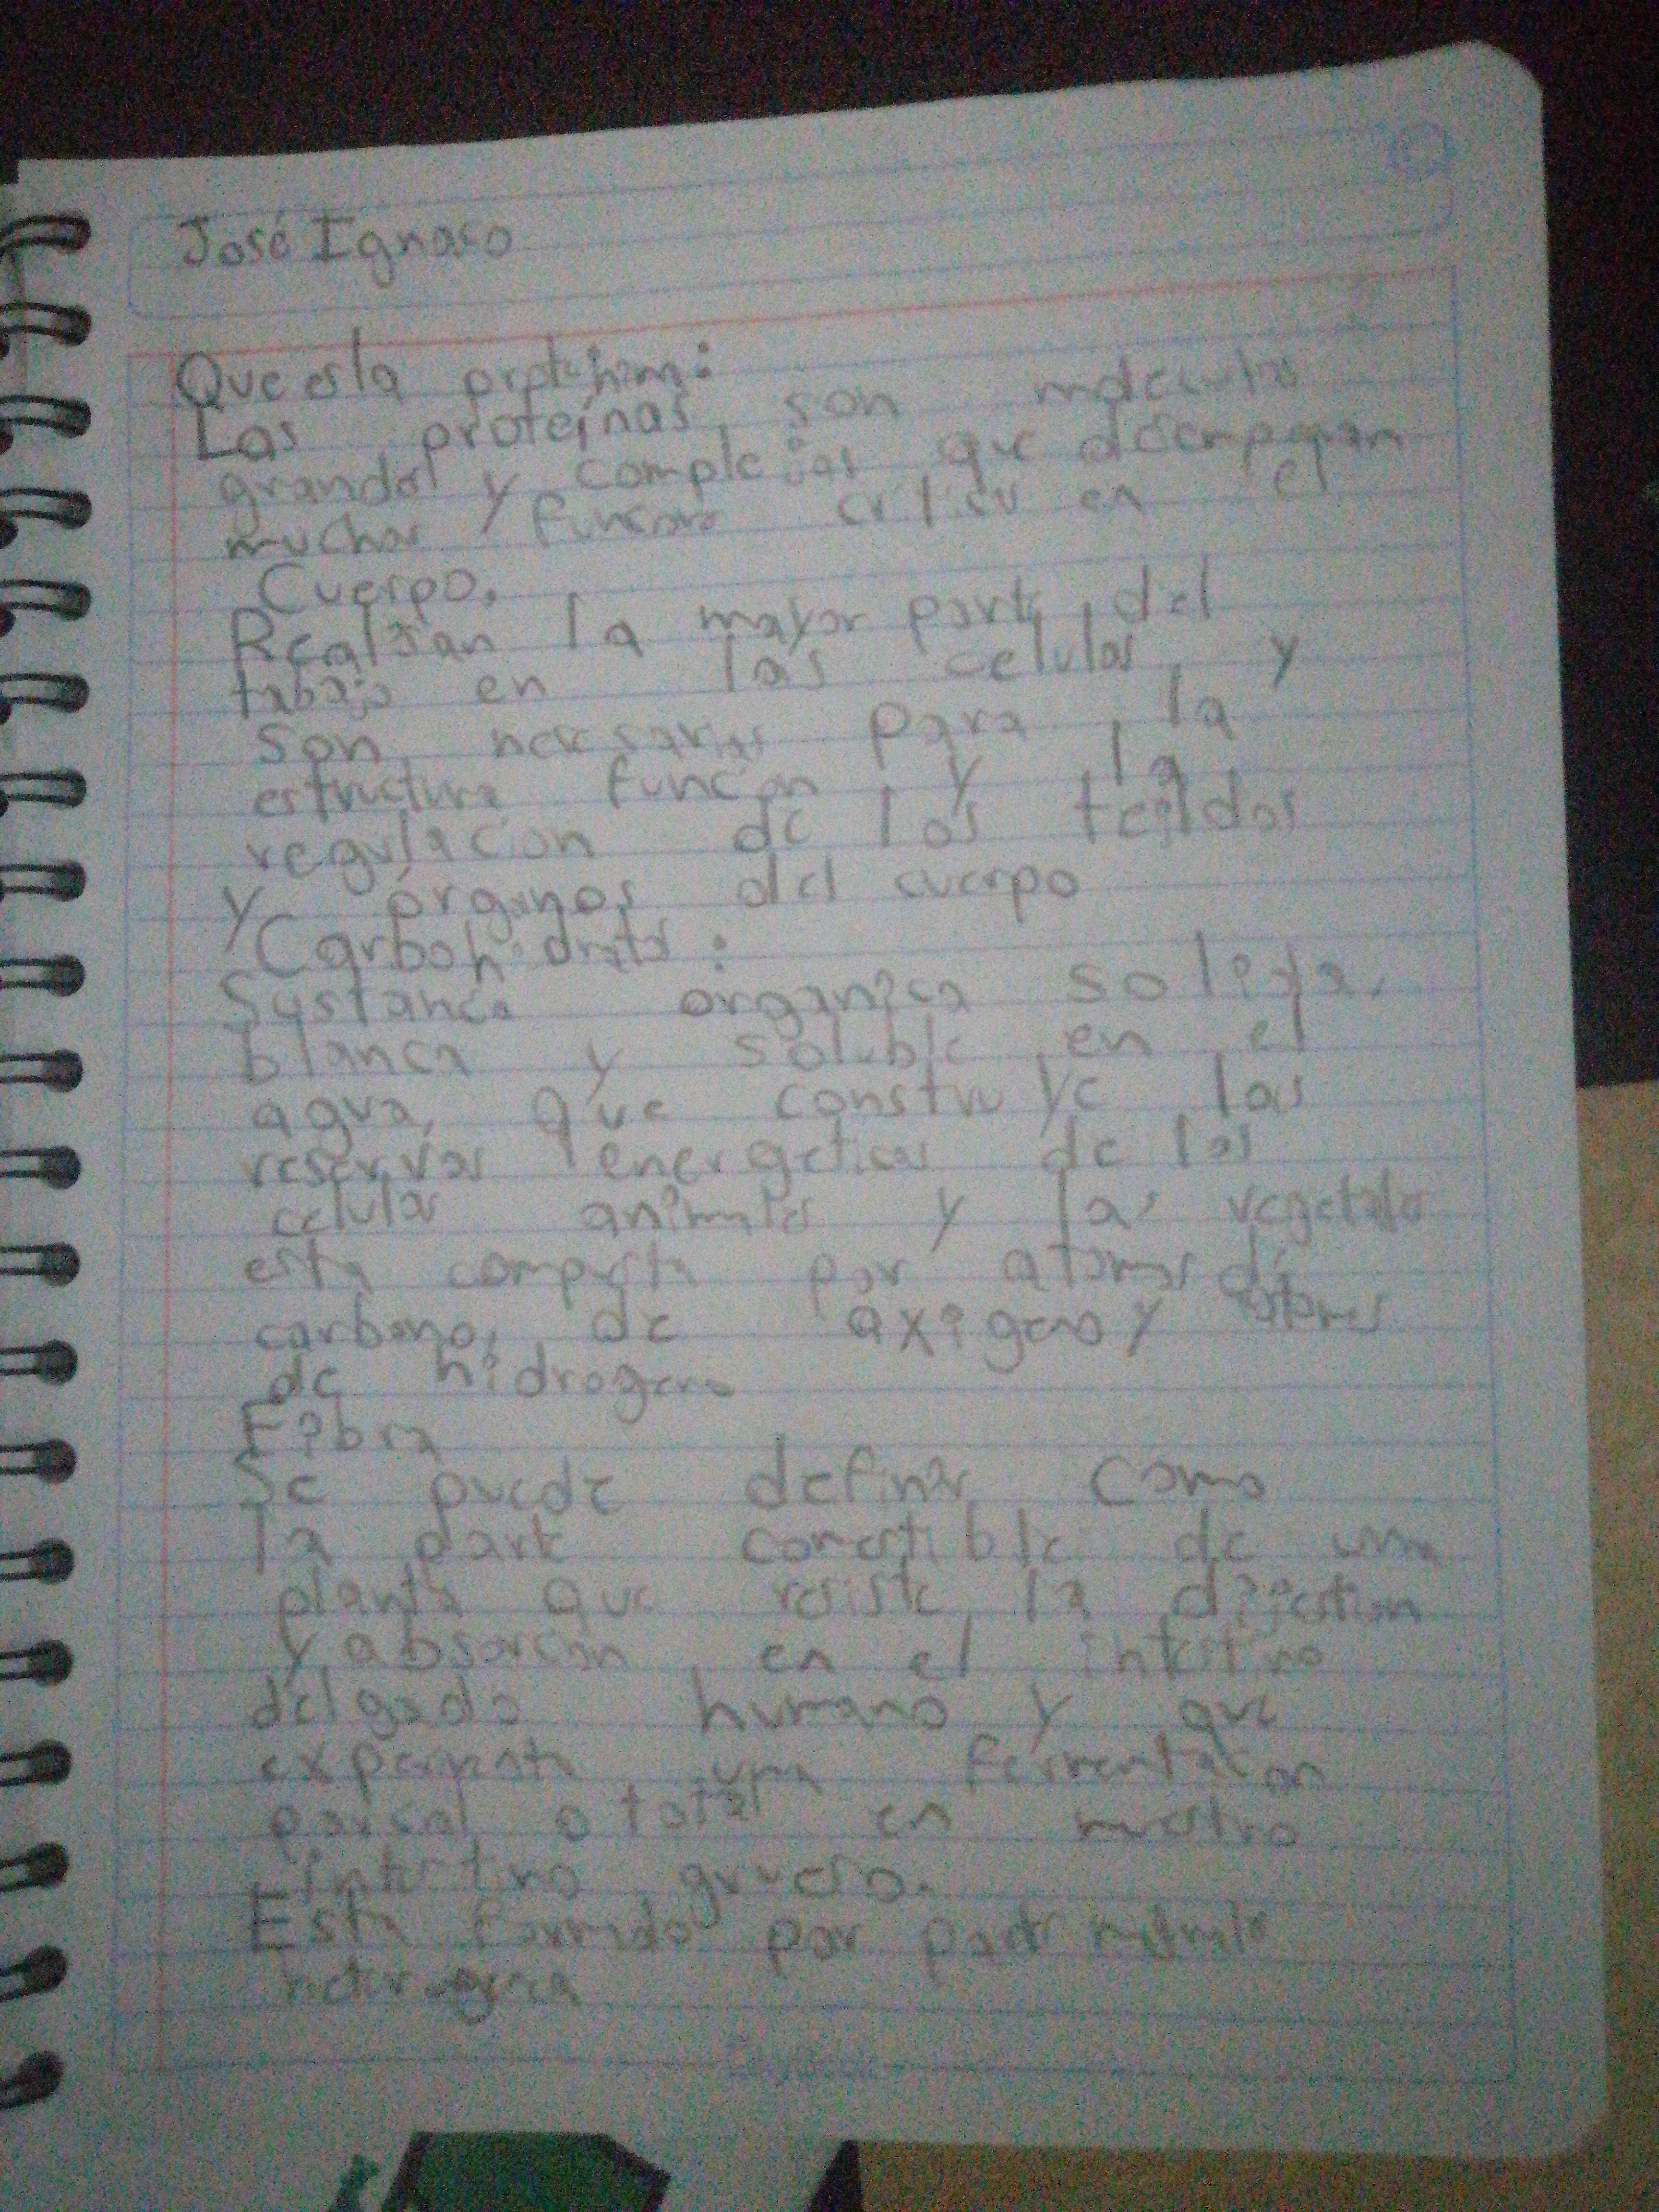 José Ignaso
Que es la
Las proteínas son
grandes y complejas que desempeñan
muchas en el
Cuerpo.
Realizan la mayor parte del
tabajo en las celulas y
son necesarias para la
estructura funcion y la
regulacion de los tejidos
y órganos del cuerpo
Carbohidratos:
Sustancia organica solida,
blanca y soluble en el
agua, que construye las
reservas energeticas de las
celulas animales y las vegetales
esta compesta por atomos de
carbono, de oxigeno y
de hidrogeno
Fibra
Se puede definir como
la parte comestible de una
planta que resiste la digestion
y absorcion en el intestino
delgado humano y que
una fermentacion
parsal o total en nuestro
intestino grueso.
Esta formado por